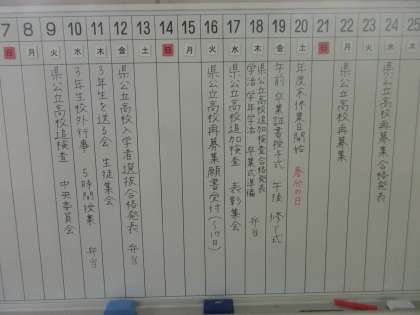 7 8 9 10 11 12 13 14 15 16 17 18 19 20 21 22 23 24 25
日 月 火 水 木 金 土 日 月 火 水 木 金 土 日 月 火 水
県公立高校追検査 中央委員会
3年生校外行事・5時間授業 弁当
3年生を送る会 生徒集会
県公立高校入学者選抜合格発表 弁当
県公立高校再募集願書受付(~17日)
県公立高校追加検査 表彰集会
県公立高校追加検査合格発表
学活・学年学活・卒業式準備 弁当
午前 卒業証書授与式 午後 修了式
年度末休業日開始 春分の日
県公立高校再募集
県公立高校再募集合格発表